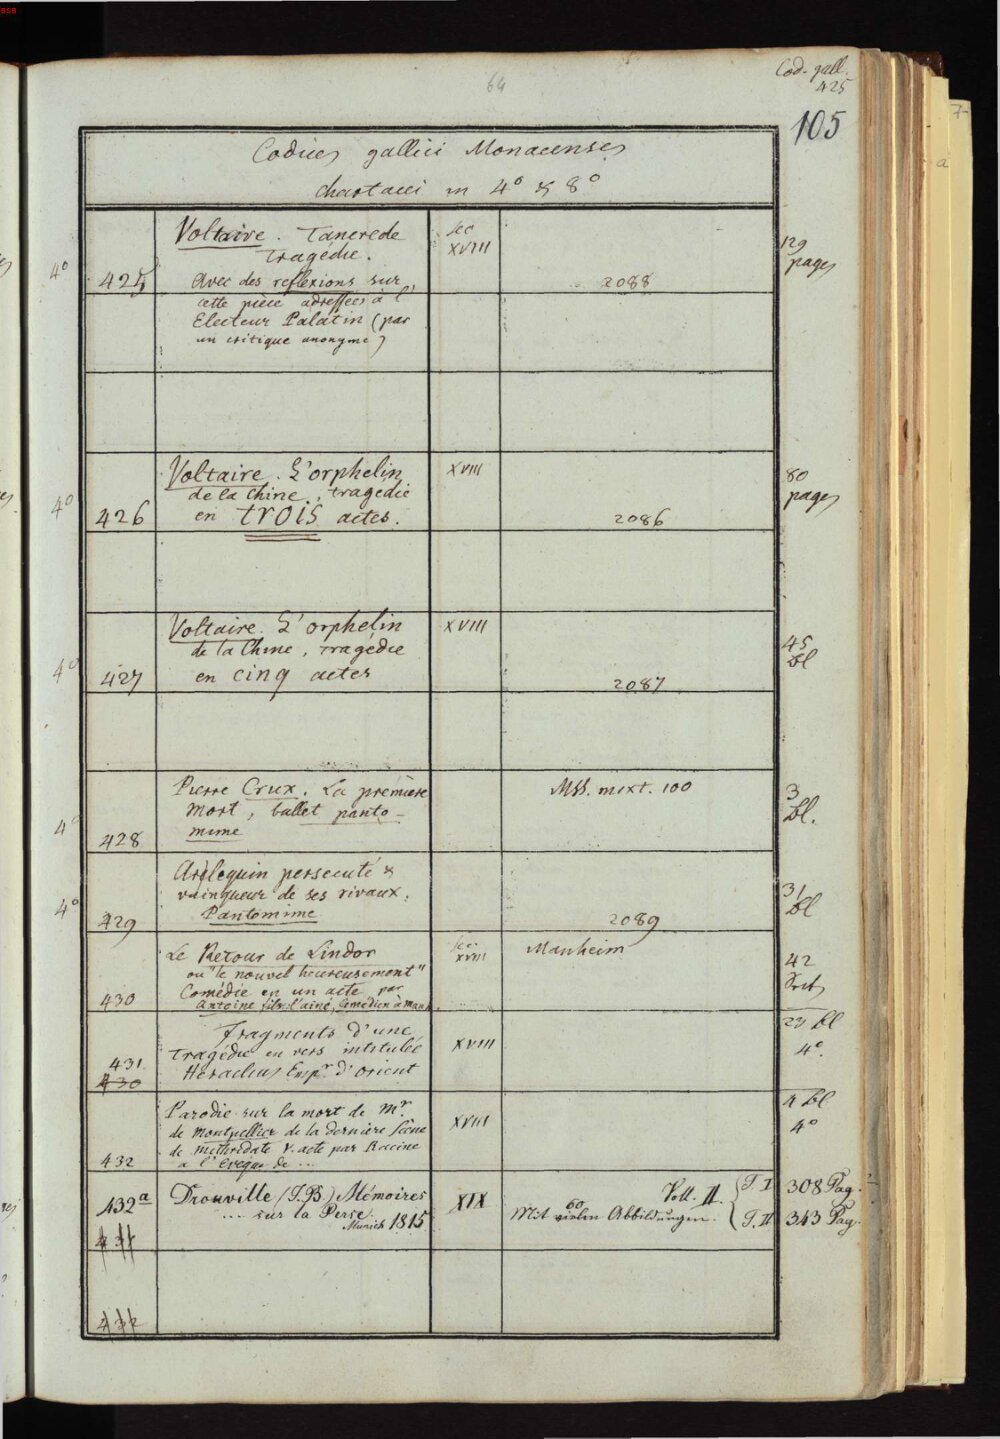 BSB
64
Cod. gall.
425
105
Codices gallici Monacenses
chartacei in 4° & 8°
4°
425
Voltaire. Tancrede
Tragédie.
Avec des reflexions sur
cette piece adressées à l'
Electeur Palatin (par
un critique anonyme)
sec
XVIII
2088
129
pages
4°
426
Voltaire. L'orphelin
de la Chine, tragédie
en trois actes.
XVIII
2086
80
pages
4°
427
Voltaire. L'orphelin
de la Chine, tragédie
en cinq actes
XVIII
2087
45
Bl
4°
428
Pierre Crux. La première
mort, ballet panto-
mime
Mss. mixt. 100
3
Bl.
4°
429
Arlequin persecuté &
vainqueur de ses rivaux.
Pantomime
2089
31
Bl
430
Le Retour de Lindor
ou "le nouvel heureusement"
Comédie en un acte par
Antoine fils l'ainé, Comédien à Manh.
sec.
XVIII
Manheim
42
431
430
Fragments d'une
Tragédie en vers intitulée
Heraclius Emp.r d'orient
XVIII
23 Bl
4°.
432
Parodie sur la mort de Mr.
de Montpellier de la derniere Scêne
de Mithridate V. acte par Racine
a l'Eveque de ...
XVIII
4 Bl
4°
432a
431
Drouville (J.B.) Mémoires
.... sur la Perse.
Munich 1815
XIX
Voll. II.
Mit 60 vielen Abbildungen.
T. I 308 Pag.
T. II 343 Pag.
432